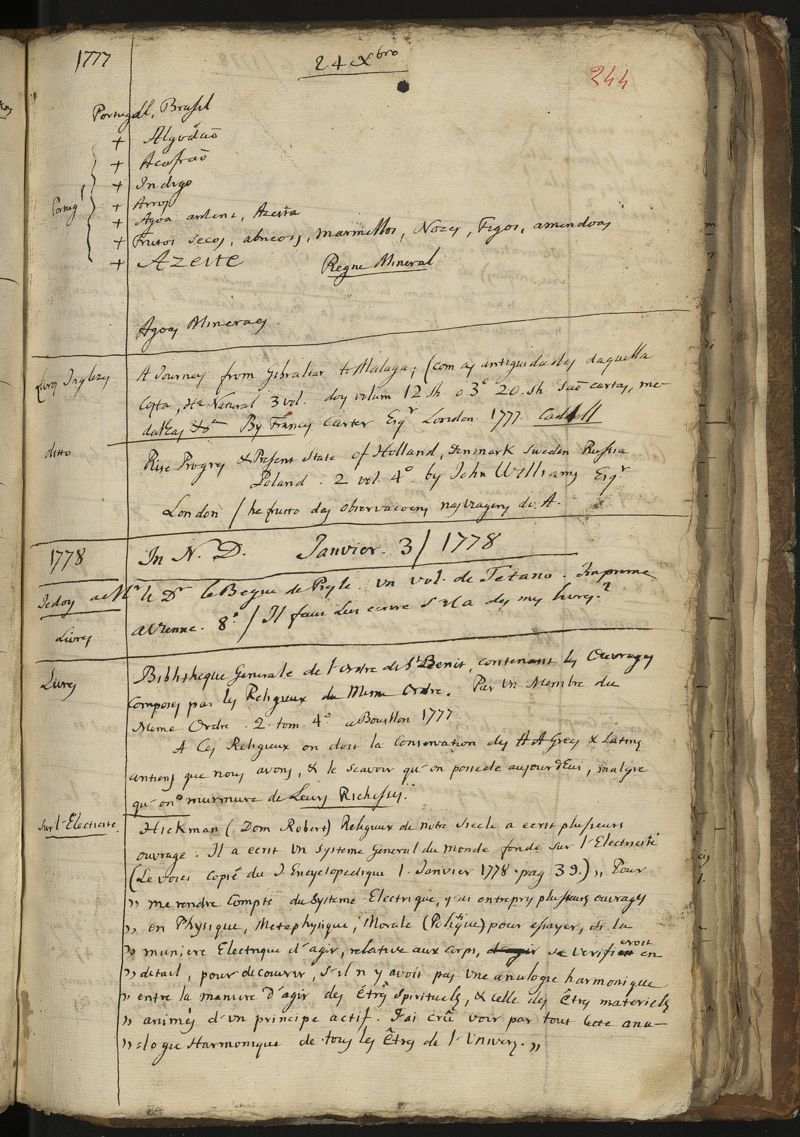 1777
24 Xbro
244
Portugal, Brasil
+ Algodaõ
+ Acafraõ
+ Indigo
Portugl
+ Arroz
+ Agoa ardene, Azeita
+ Frutos secos, abricos, marmellos, Nozes, Figos, amendoas
+ Azeite
Regne Mineral
Agoas Mineraes
Livros Inglezes
A Journey from Gibraltar to Malaga; (com as antiguidades daquella
Costa, Hia Natural 3 vol. doys volum 12 Sh. o 3o 20. sh saõ cartas, me-
dalhas &a By Francis Carter Esqr London 1777. Cadell
ditto
Rise Progres & Present State of Holland, Denmark Sweden Russia
Poland. 2 vol 4o. by John Williams Esqr
London / he frutto das observacoens nas viagens do A.
1778
In N. D. Janvier. 3 / 1778
Mr le Dr le Begue de Presle. un vol. de Tetano. Imprime
Livres
a Vienne. 8o / Il faut lui ecrire s'il a des mes livres?
Livres
Bibliotheque Generale de l'ordre de St Benit, contenant les Ouvrages
composes par les Religieux du Meme Ordre. Par un Membre du
Meme Ordre. 2. tom. 4o a Bouillon 1777
A Ces Religieux on doit la Conservation des AA Grecs & Latins
antiens que nous avons, & le scavoir qu'on possede aujourd'Eui, malgre
qu'on murmure de Leurs Richesses.
Sur l'Electricite.
Hickman (Dom Robert) Religieux de notre siecle a ecrit plusieurs
ouvrage. Il a ecrit un systeme General du monde fonde sur l'Electricité
(Le voici copié du J. Encyclopedique 1. Janvier 1778. pag 39.) ,, Pour
,, me rendre Compte du Systeme Electrique, j'ai entrepris plusieurs ouvrages
,, en Physique, Metaphysique, Morale (Politique) pour essayer, si la
,, maniere Electrique d'agir, relative aux corps, se verifieroit en
,, detail, pour decouvrir, s'il n'y avoit pas une analogie harmonique
,, entre la maniere d'agir des Êtres Spirituels, & celle des Êtres materiels
,, animés d'un principe actif. J'ai crû voir par tout cete ana-
,, =logie Harmonique de tous les Êtres de l'Univers. ,,